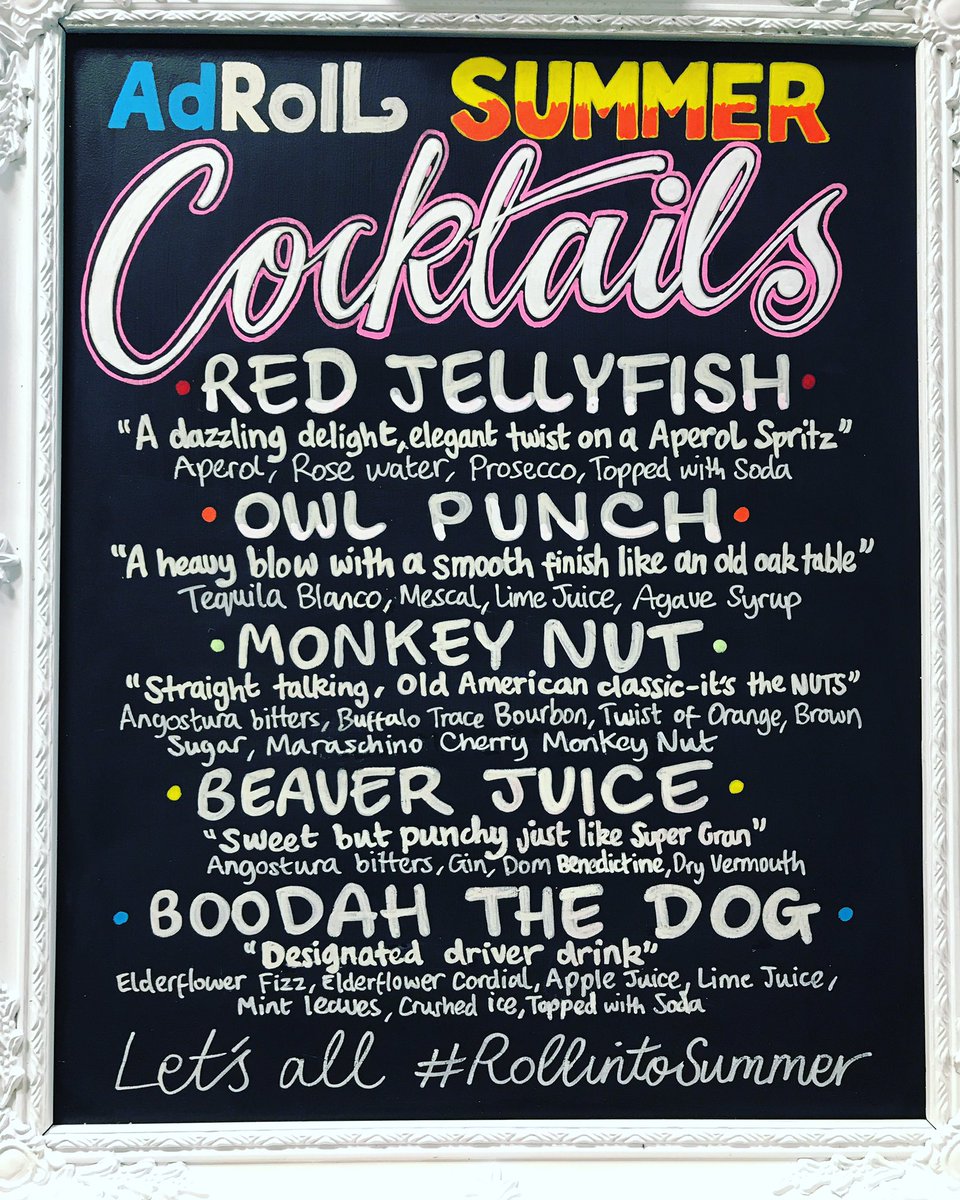 AdRoll SUMMER
Cocktails
• RED JELLYFISH •
"A dazzling delight, elegant twist on a Aperol Spritz"
Aperol, Rose water, Prosecco, Topped with Soda
• OWL PUNCH •
"A heavy blow with a smooth finish like an old oak table"
Tequila Blanco, Mescal, Lime Juice, Agave Syrup
• MONKEY NUT •
"Straight talking, Old American classic-it's the NUTS"
Angostura bitters, Buffalo Trace Bourbon, Twist of Orange, Brown
Sugar, Maraschino Cherry Monkey Nut
• BEAVER JUICE •
"Sweet but punchy just like Super Gran"
Angostura bitters, Gin, Dom Benedictine, Dry Vermouth
• BOODAH THE DOG •
"Designated driver drink"
Elderflower Fizz, Elderflower Cordial, Apple Juice, Lime Juice,
Mint leaves, Crushed ice, Topped with Soda
Let's all #RollintoSummer